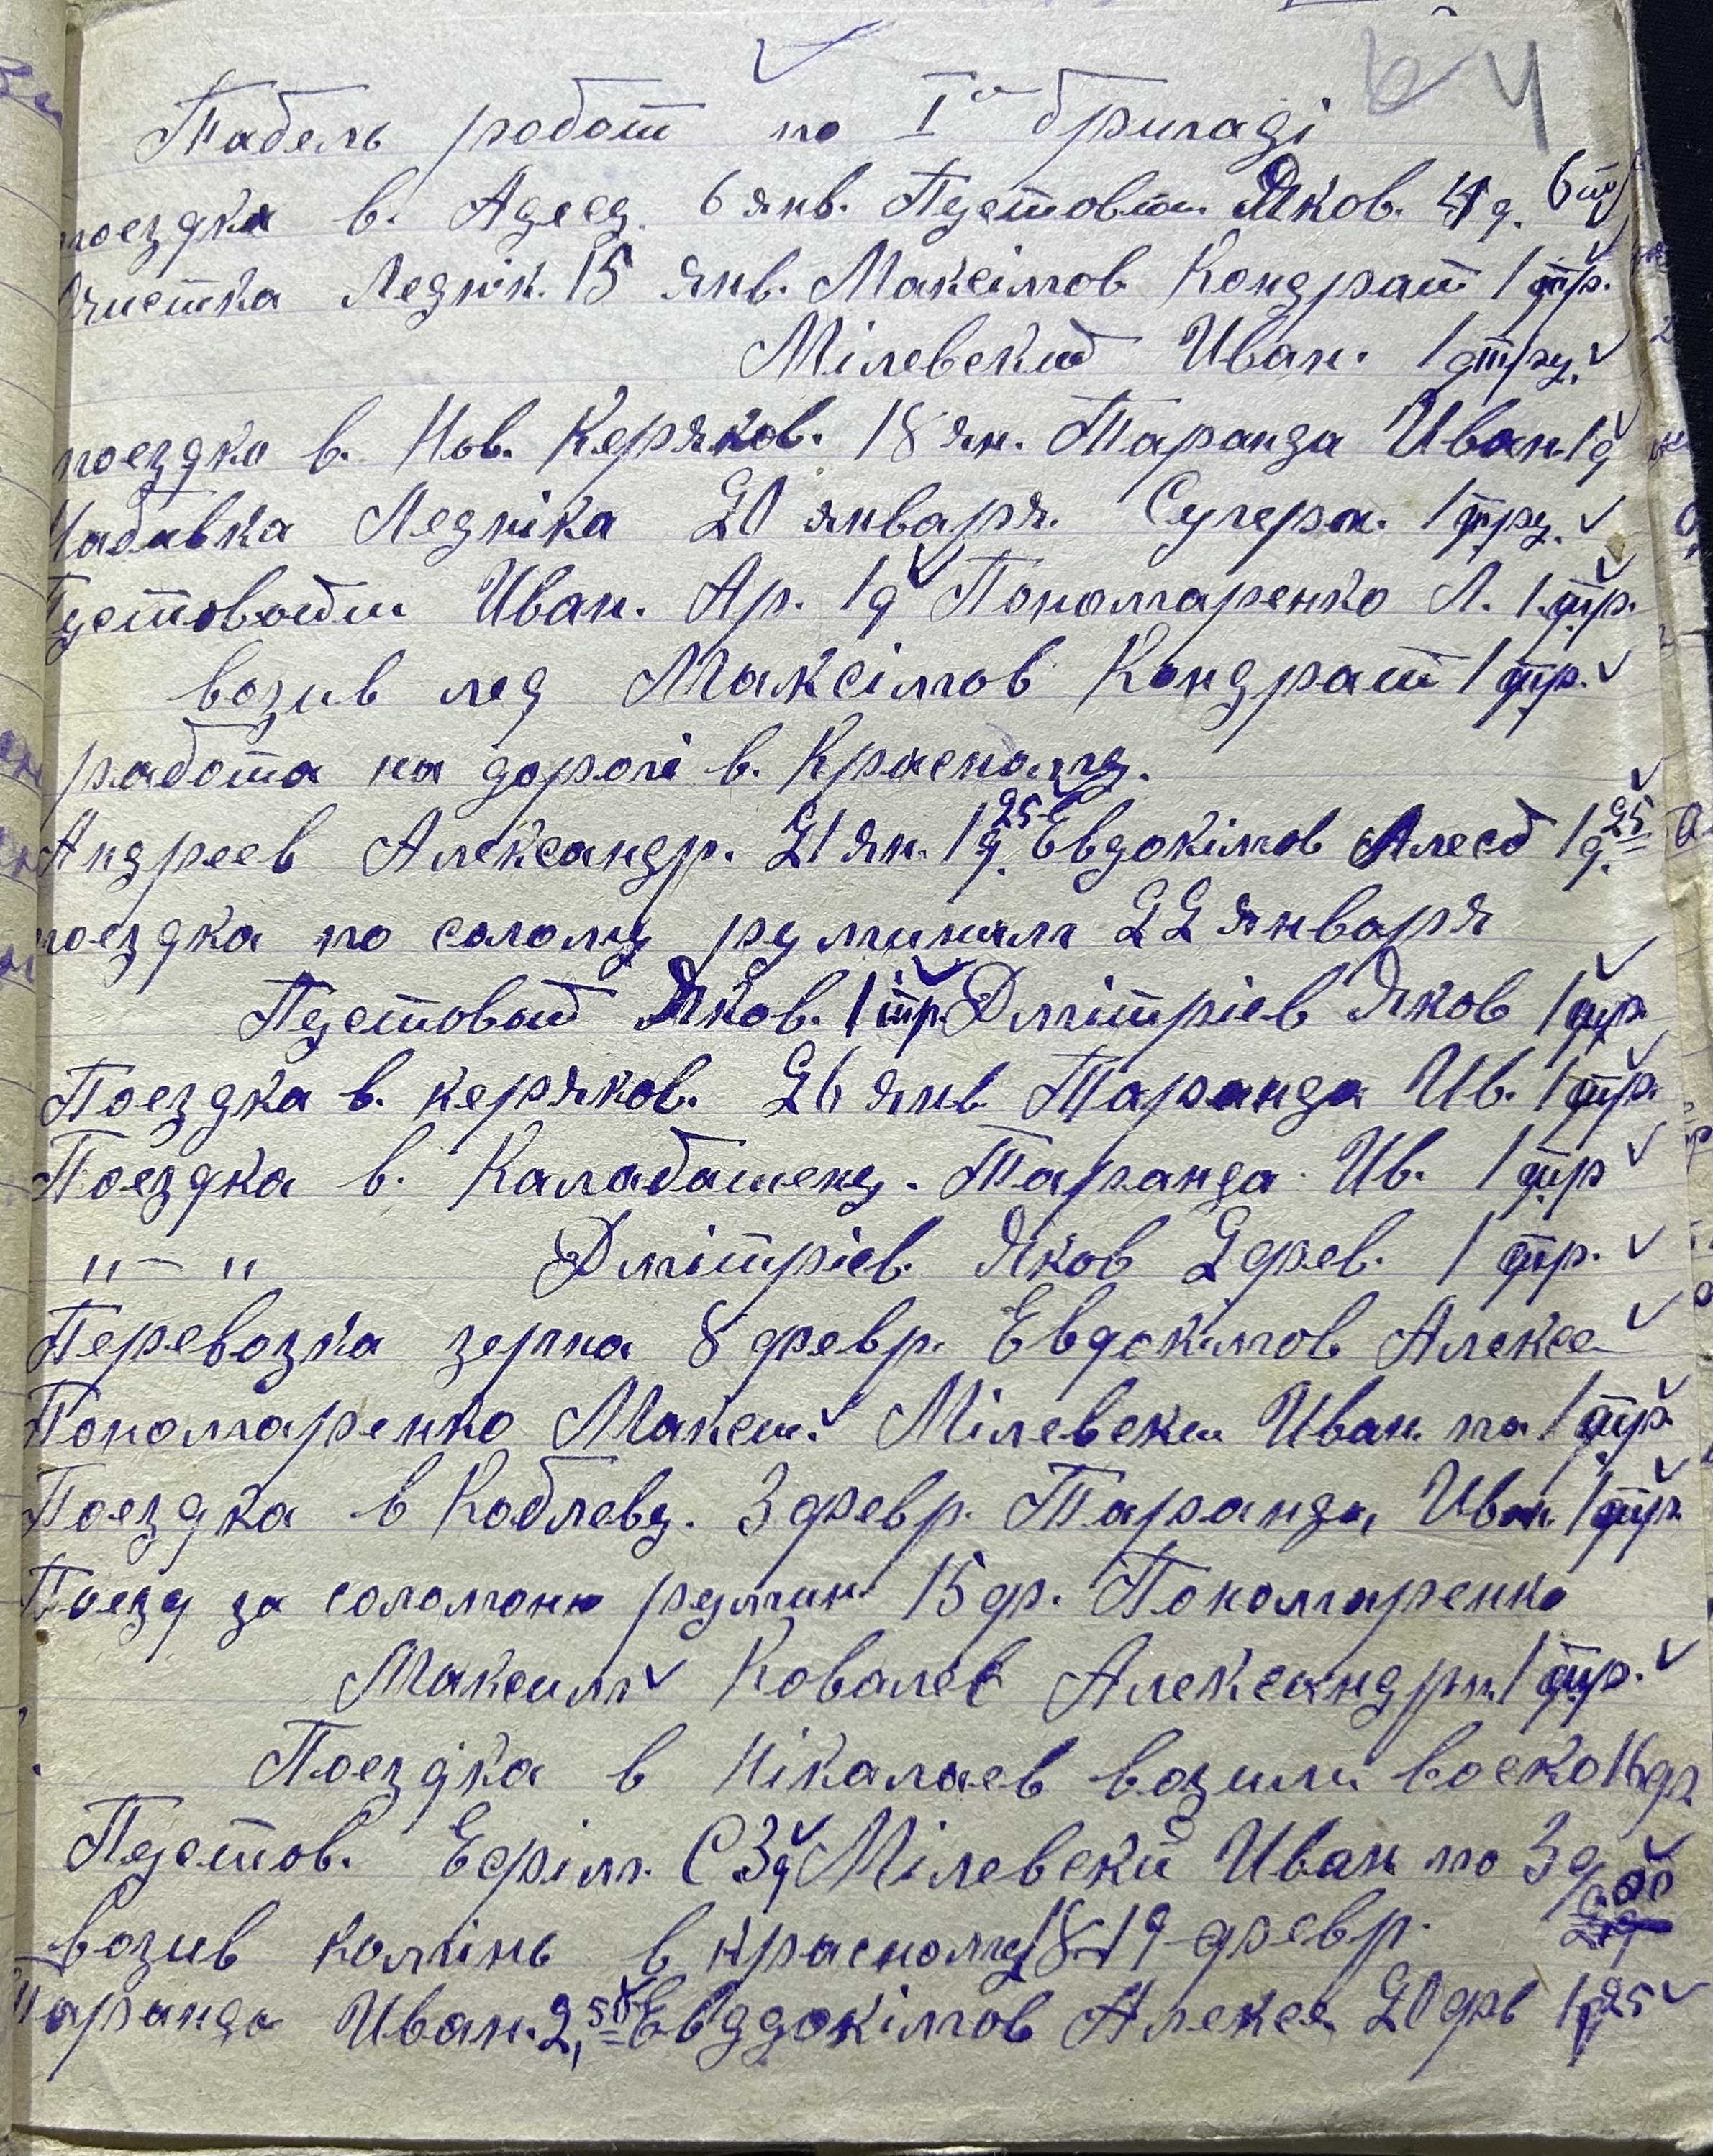 64
Табель работ по Iй бригаді
поездка в. Адесу. 6 янв. Пустовит. Яков. 4 д.
Очистка Леднік. 15 янв. Максімов Кондрат 1 тр.
Мілевский Иван. 1 тру.
поездка в. Нов. Керяков. 18 ян. Таранда Иван. 1 д
Набавка Ледніка 20 января. Сугерж. 1 тру.
Пустовойт Иван. Ар. 1 д Пономаренко Л. 1 тр.
возив лед Максімов Кондрат 1 тр.
работа на дорогі в. Красному.
Андреев Александр. 21 ян. 1 д. 25 Евдокімов Алесй 1 д. 25
поездка по солому румыням 22 января
Пустовой Яков. 1 тр. Дмітріев Яков 1 тр
Поездка в. керяков. 26 янв. Таранда Ив. 1 тр.
Поездка в. Калабатену. Таранда Ив. 1 тр
" — " Дмітріев. Яков 2 фев. 1 тр.
Перевозка зерна 8 февр. Евдокимов Алексе
Пономаренко Максим. Мілевски Иван. по 1 тр.
Поездка в Коблеву. 3 февр. Таранда Иван. 1 тр.
Поезд за соломою румын. 15 ф. Пономаренко
Максим Ковалев Александр. 1 тр.
Поездка в Нікалаев возили воско 16 ф
Пустов. Ефім. С 3 д Мілевский Иван по 3 д
возив камінь в красному 18-19 февр.
Таранда Иван. 2,50 Евддокімов Алексе 20 фв 1 25